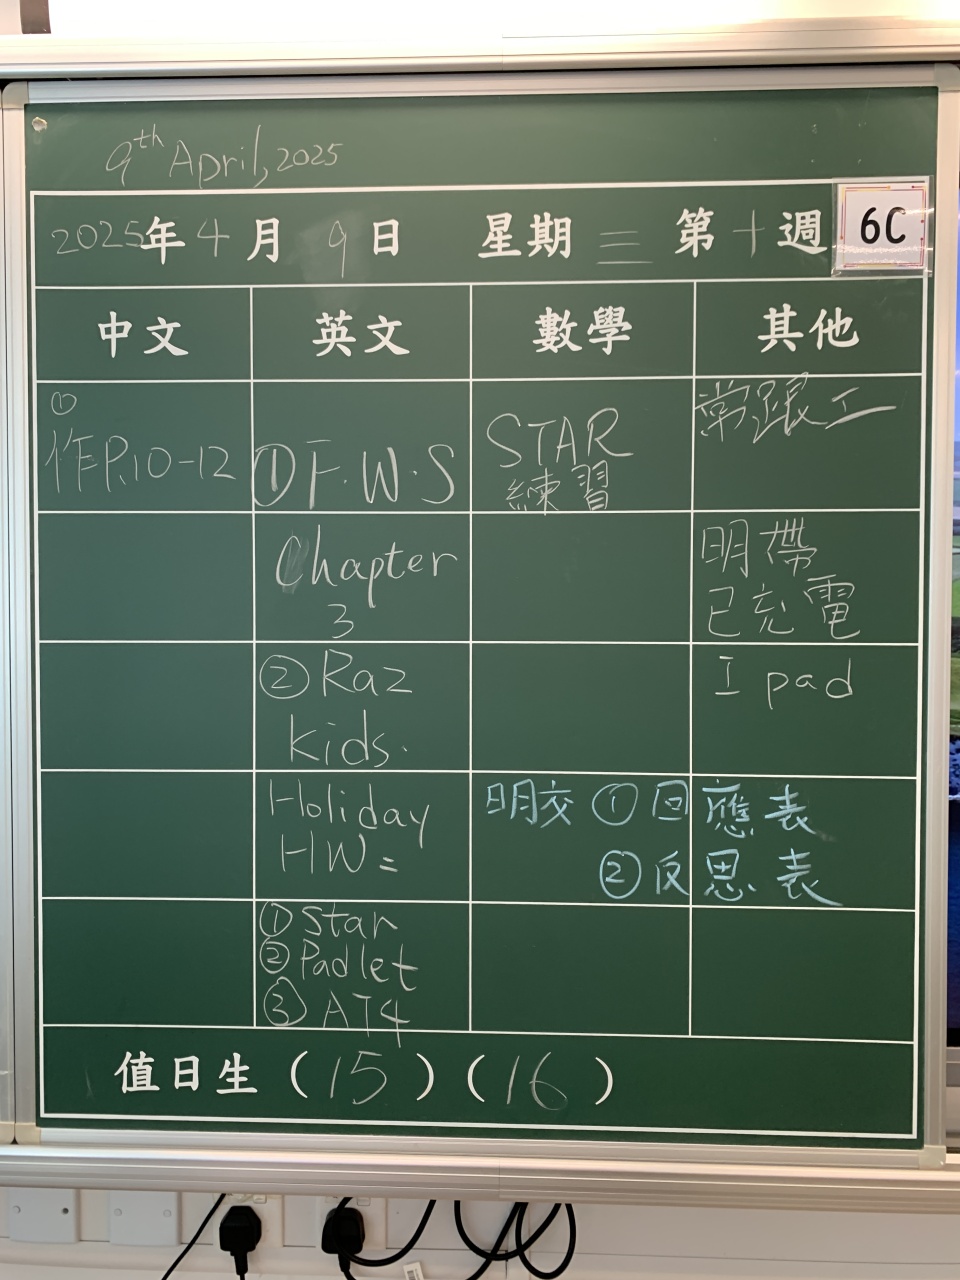 9th April, 2025
2025年 4 月 9 日 星期 三 第 十 週 6C
中文 英文 數學 其他
①
作P.10-12
① F.W.S
Chapter
3
② Raz
kids.
Holiday
HW=
① Star
② Padlet
③ AT4
STAR
練習
常識工
明帶
已充電
I pad
明交 ① 回應表
② 反思表
值日生 ( 15 ) ( 16 )